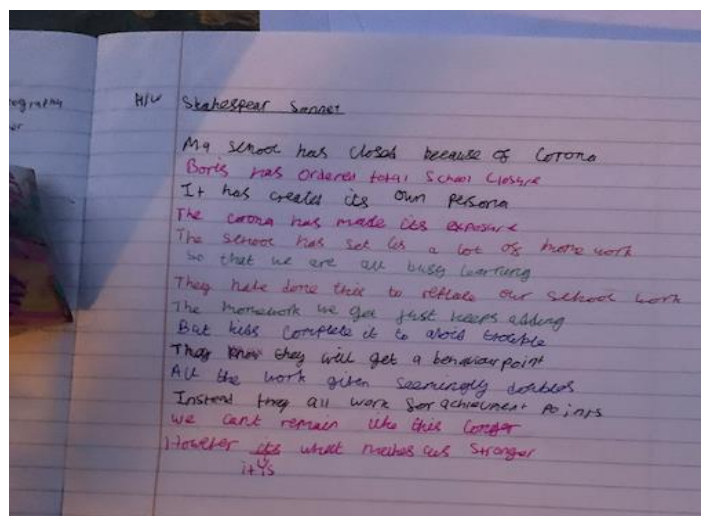 ography
H/W Shakespear Sonnet
My school has closed because of Corona
Boris has ordered total School Closure
It has created its own persona
The corona has made its exposure
The school has set us a lot of home work
So that we are all busy learning
They have done this to replace our school work
The homework we get just keeps adding
But kids complete it to avoid trouble
They know they will get a behaviour point
All the work given seemingly doubles
Instead they all work for achievement points
We cant remain like this longer
However its what makes us stronger
it is